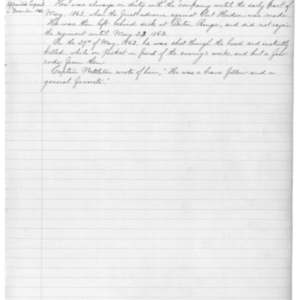 was always on duty with the company until the early part of
May, 1863, when the first advance against Port Hudson was made.
He was then left behind sick at Baton Rouge, and did not rejoin
the regiment until May 23, 1863.
On the 29th of May, 1863, he was shot through the head and instantly
killed, while on picket in front of the enemy's works, and but a few
rods from them.
Captain Nettleton wrote of him, "He was a brave fellow and a
general favorite."